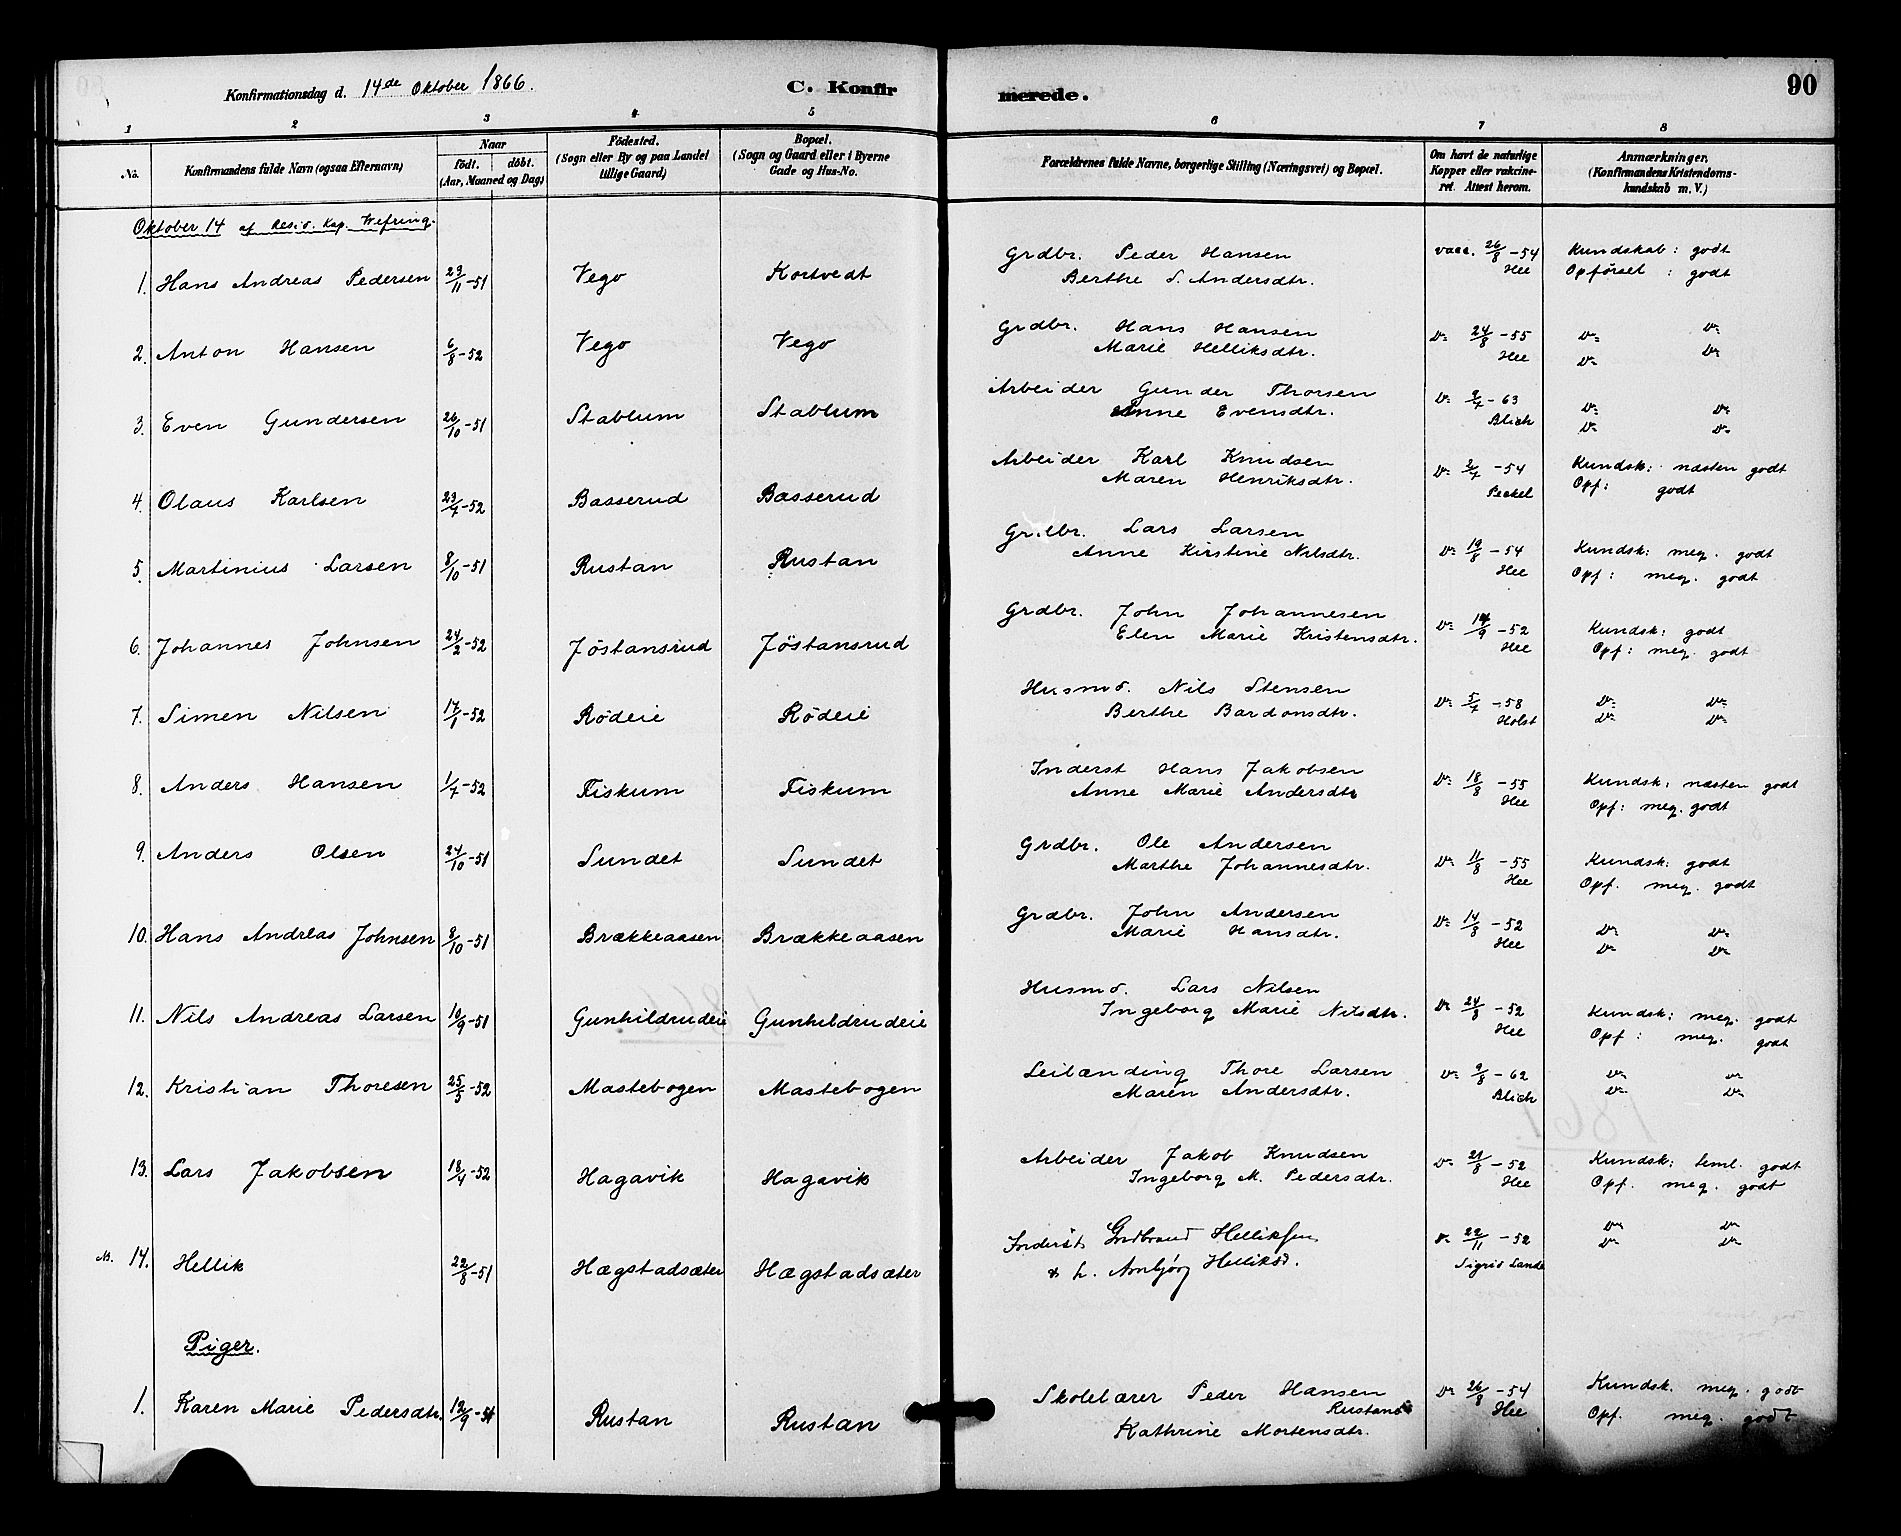 Konfirmationsdag d. 14de Oktober 1866.
C. Konfirmerede.
90
1 2 3 4 5 6 7 8
No.
Konfirmandens fulde Navn (ogsaa Efternavn)
Naar
födt. döbt.
(Aar, Maaned og Dag)
Födested.
(Sogn eller By og paa Landet
tillige Gaard)
Bopæl.
(Sogn og Gaard eller i Byerne
Gade og Hus-No.
Forældrenes fulde Navne, borgerlige Stilling (Næringsvei) og Bopæl.
Om havt de naturlige
Kopper eller vakcine-
ret. Attest herom.
Anmærkninger.
(Konfirmandens Kristendoms-
kundskab m. V.)
Oktober 14 af Resid. Kap. Wefring.
1. Hans Andreas Pedersen 29/11-51 Vego Kortvedt Grdbr. Peder Hansen vacc. 26/8-54 Kundskab: godt
Berthe S. Andersdtr. Hee Opførsel: godt
2. Anton Hansen 6/8-52 Vego Vego Grdbr. Hans Hansen D= 24/8-55 D= D=
Marie Helliksdtr. Hee D= D=
3. Even Gundersen 26/10-51 Stablum Stablum Arbeider Gunder Thorsen D= 2/7-63 D= D=
Anne Evensdtr. Blich D= D=
4. Olaus Karlsen 29/7-52 Basserud Basserud Arbeider Karl Knudsen D= 2/7-54 Kundsk: næsten godt
Maren Henriksdtr. Peckel Opf: godt
5. Martinius Larsen 8/10-51 Rustan Rustan Grdbr. Lars Larsen D= 19/8-54 Kundsk: meg. godt
Anne Kirstine Nilsdtr. Hee Opf: meg. godt
6. Johannes Johnsen 24/2-52 Jøstansrud Jøstansrud Grdbr. John Johannesen D= 14/9-52 Kundsk: godt
Elen Marie Kristensdtr. Hee Opf: meg. godt
7. Simen Nilsen 17/1-52 Rødeie Rødeie Husmd. Nils Stensen D= 5/7-58 D= D=
Berthe Bardonsdtr. Holst D= D=
8. Anders Hansen 1/7-52 Fiskum Fiskum Inderst Hans Jakobsen D= 18/8-55 Kundsk: næsten godt
Anne Marie Andersdtr Hee Opf: meg. godt
9. Anders Olsen 24/10-51 Sundet Sundet Grdbr. Ole Andersen D= 11/8-55 Kundsk: godt
Marthe Johannesdtr. Hee Opf. meg. godt
10. Hans Andreas Johnsen 8/10-51 Brækkeaasen Brækkeaasen Grdbr. John Andersen D= 14/8-52 D= D=
Marie Hansdtr. Hee D= D=
11. Nils Andreas Larsen 10/9-51 Gunhildrudeie Gunhildrudeie Husmd. Lars Nilsen D= 24/8-52 Kundsk: meg. godt
Ingeborg Marie Nilsdtr. Hee Opf: meg. godt
12. Kristian Thoresen 25/5-52 Mastebogen Mastebogen Leilænding Thore Larsen D= 9/8-62 D= D=
Maren Andersdtr. Blich D= D=
13. Lars Jakobsen 18/4-52 Hagavik Hagavik Arbeider Jakob Knudsen D= 21/8-52 Kundsk: teml. godt
Ingeborg M. Pedersdtr. Hee Opf. meg. godt
NB. 14. Hellik 22/8-51 Hægstadsæter Hægstadsæter Inderst Gudbrand Helliksen D= 22/11-52 D= D=
& h. Annbjørg Helliksd. Sigrid Lande D= D=
Piger.
1. Karen Marie Pedersdtr. 12/9-51 Rustan Rustan Skolelærer Peder Hansen D= 26/8-54 Kundsk. meg. godt
Rustand Hee Opf. meg. godt
Kathrine Mortensdtr.